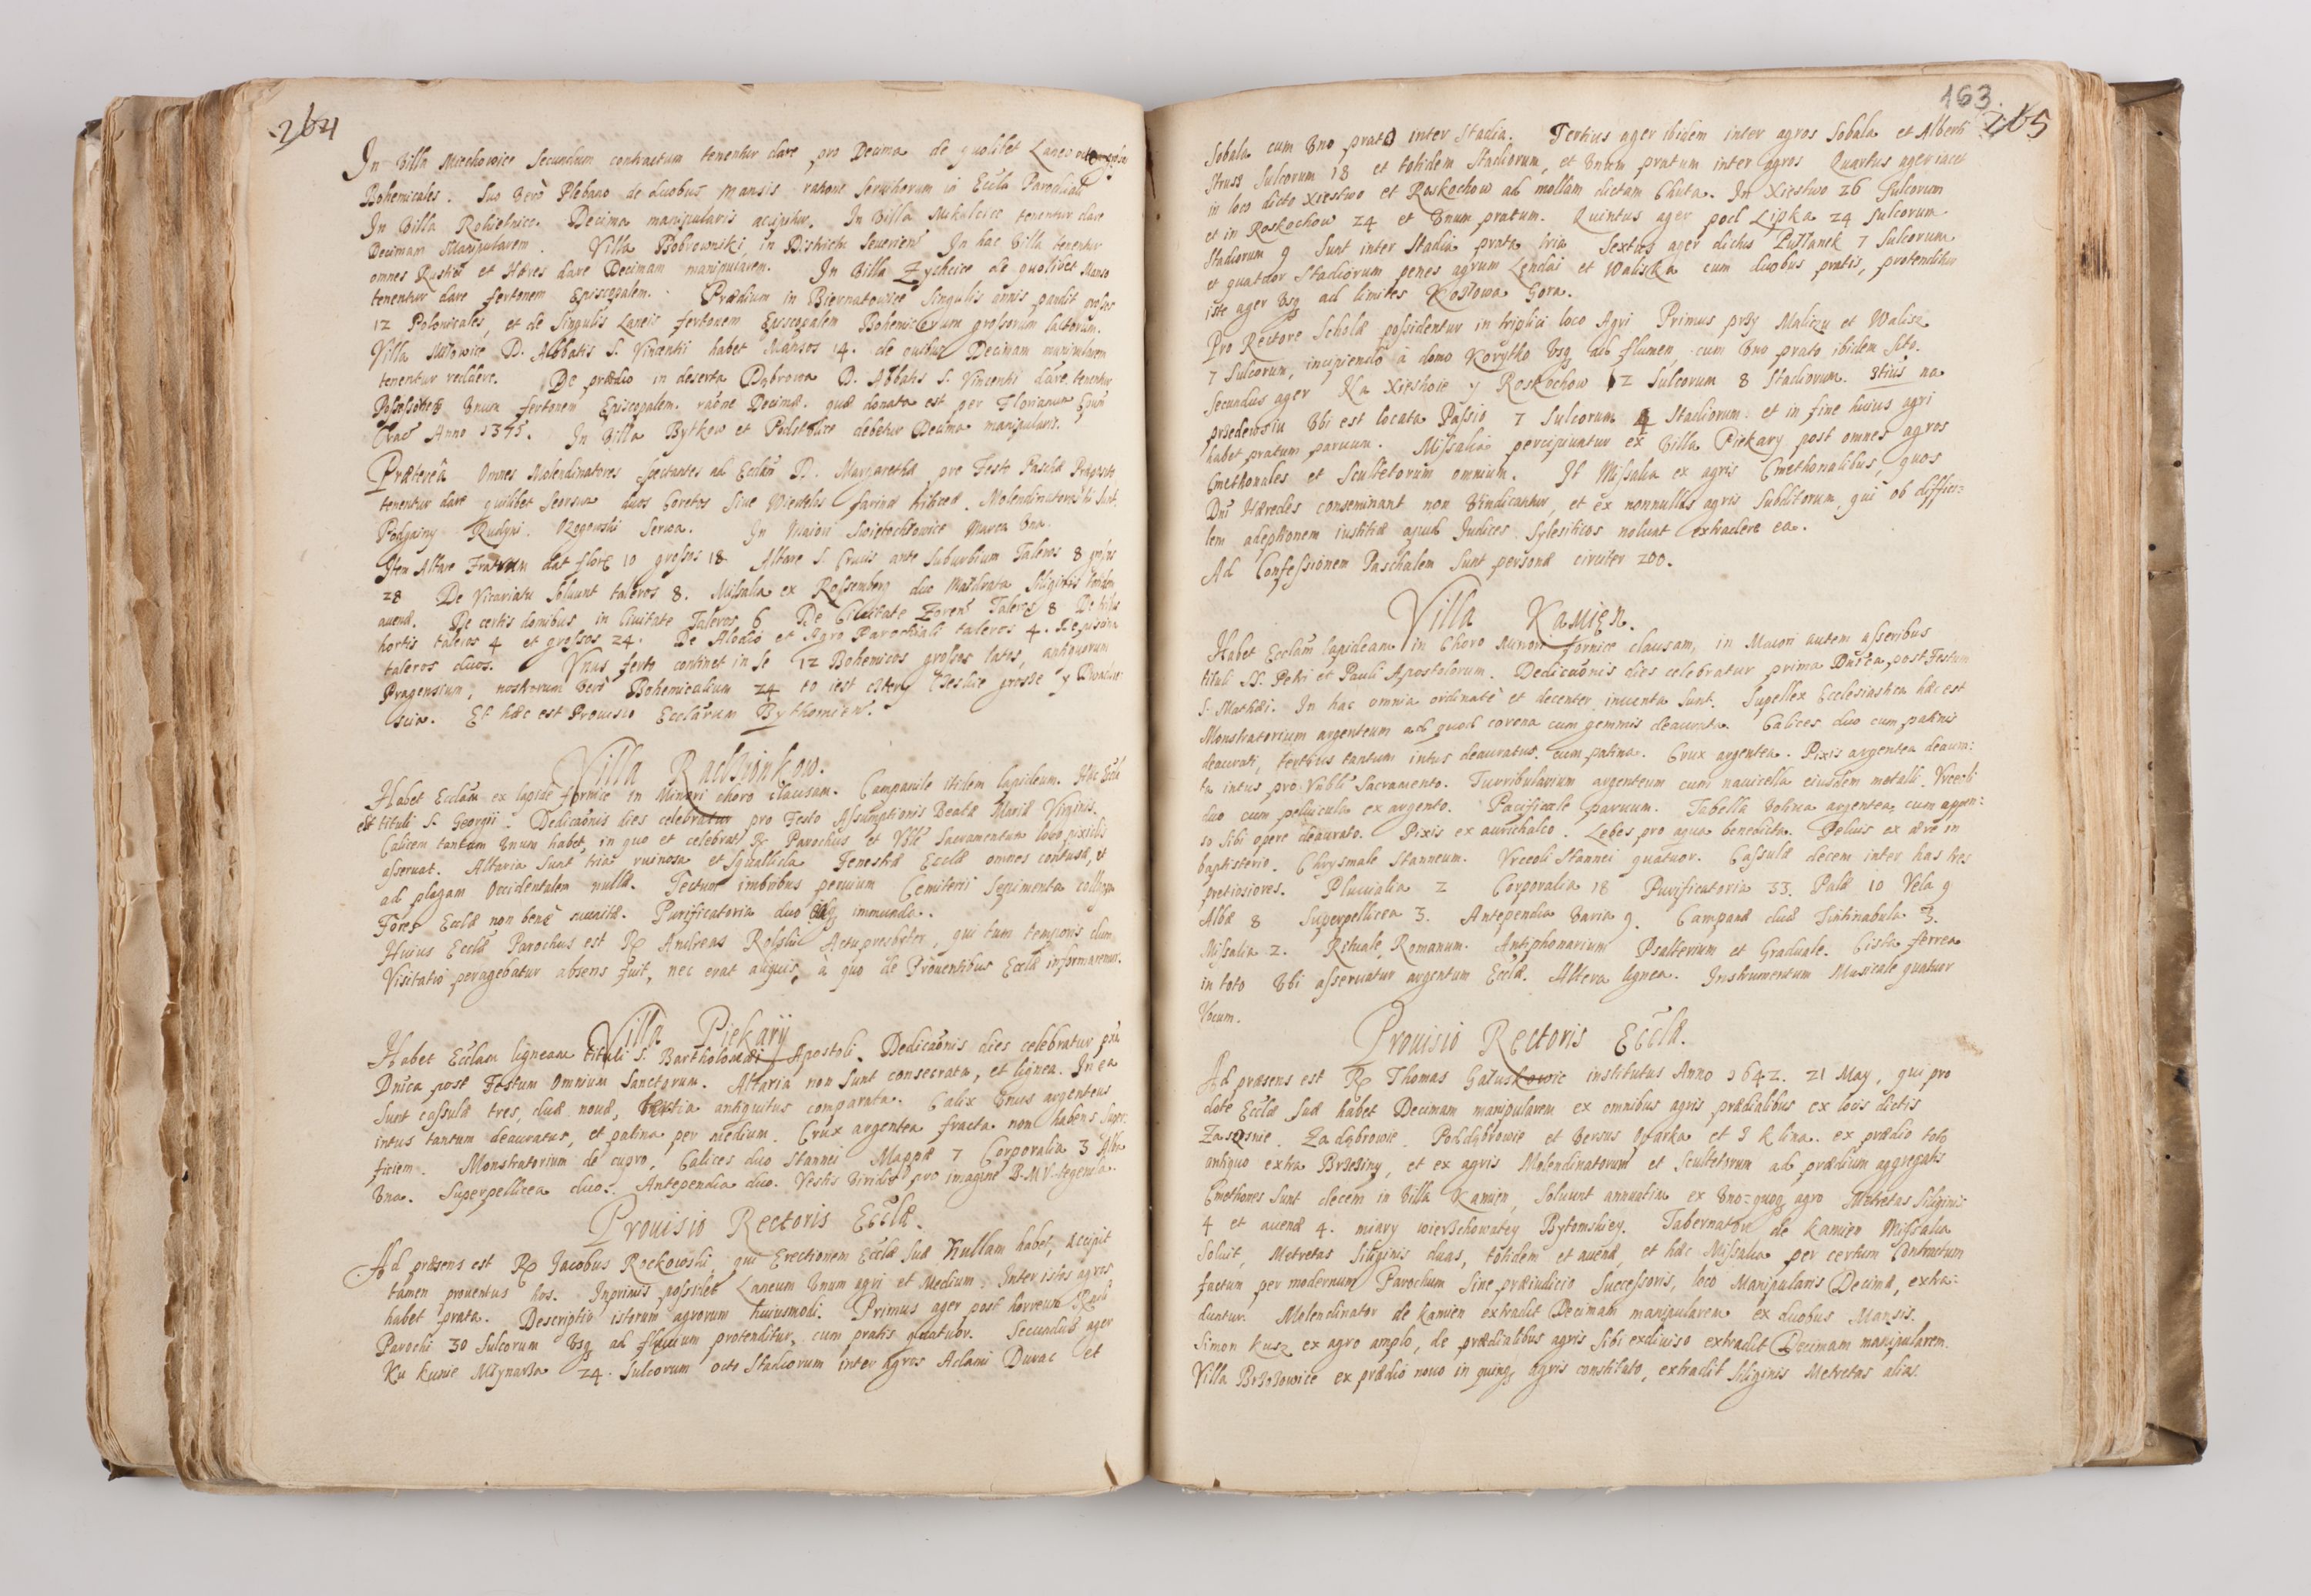 264
In Villa Miechowice secundum contractum tenentur dare pro Decima de quolibet Laneo
Bohemicales. Suo Verò Plebano de duobus Mansis ratione in Eccla Parochiali
In Villa Rokietnice Decima manipularis accipitur. In Villa Mikulcice tenentur dare
Decimam Manipularem. Villa Bobrowniki, in Districtu Severien In hac Villa tenentur
omnes Rustici et Hæres dare Decimam manipularem. In Villa Zychcice de quolibet Manso
tenentur dare fertonem Episcopalem. Prædium in Biernatowice singulis annis pendit grosses
12 Polonicales, et de singulis Laneis fertonem Episcopalem Bohemicorum grossorum latorum.
Villa Miłowice D. Abbatis S. Vincentii habet Mansos 14. de quibus Decimam manipularem
tenentur reddere. De prædio in deserta Dąbrowa D. Abbatis S. Vincentii dare tenentur
Possessores Unum fertonem Episcopalem raõne Decimæ. quæ donata est per Florianum Epum
Crac Anno 1375. In Villa Bytkow et Podstolice debetur Decima manipularis.
Prætereà Omnes Molendinatores spectantes ad Ecclam D. Margarethæ pro Festo Paschæ Præposito
tenentur dare quilibet seorsim duos Coretos siue Wiertelos farinæ triticeæ. Molendinatores hi sunt
Podgorny Rudyni. Ozegowski Serwa. In Maiori Swiętochłowice Marca Una
Item Altare Fratrum dat flore 10 grossos 18 Altare S. Crucis ante Suburbium Taleros 8 grossos
28 De Vicariatu soluunt taleros 8. Missalia ex Rossemberg duo Maldrata siliginis totidem
auenæ. De certis domibus in Ciuitate Taleros 6 De Ciuitate Zoren Taleros 8 De
hortis taleros 4 et grossos 24. De Alodio et Agro Parochiali taleros 4. De piscina
taleros duos. Vnus ferto continet in se 12 Bohemicos grossos latos, antiquorum
Pragensium, nostrorum Verò Bohemicalium 24 to iest cztery Czeskie grosze y
scia. Et hæc est Prouisio Ecclarum Bythomien.
Villa Radzionkow.
Habet Ecclam ex lapide fornice in Minori choro clausam. Campanile itidem lapideum. Hæc Eccla
est tituli S. Georgii. Dedicaõnis dies celebratur pro Festo Assumptionis Beatæ Mariæ Virginis.
Calicem tantum Unum habet, in quo et celebrat R Parochus et Vble Sacramentum loco pixidis
asseruat. Altaria sunt tria ruinosa et squallida Fenestræ Ecclæ omnes contusæ, et
ad plagam Occidentalem nullæ. Tectum imbribus peruium Cemiterii sepimenta collapsa
Fores Ecclæ non benè munitæ. Purificatoria duo immunda.
Huius Ecclæ Parochus est R Andreas Actu presbyter, qui tum temporis dum
Visitatio peragebatur absens fuit, nec erat aliquis, à quo de Prouentibus Ecclæ informaremur.
Villa Piekary
Habet Ecclam ligneam tituli S. Bartholomæi Apostoli. Dedicaõnis dies celebratur pria
Dnica post Festum Omnium Sanctorum. Altaria non sunt consecrata, et lignea. In ea
sunt casulæ tres, duæ nouæ, tertia antiquitus comparata. Calix Unus argenteus
intus tantum deauratus, et patina per medium. Crux argentea fracta non habens super
ficiem. Monstratorium de cupro, Calices duo stannei Mappæ 7 Corporalia 3 Alba
Una. Superpellicea duo. Antependia duo. Vestis Viridis pro imagine B.M.V. tegenda.
Prouisio Rectoris Ecclæ.
Ad præsens est R Jacobus Roczkowski qui Erectionem Ecclæ suæ Nullam habet, accipit
tamen prouentus hos. Inprimis possidet Laneum Unum agri et Medium. Inter istos agros
habet prata. Descriptio istorum agrorum huiusmodi. Primus ager post horreum
Parochi 30 Sulcorum Vsq ad fluuium protenditur, cum pratis quatuor. Secundus ager
Ku kunie Młynarza 24. Sulcorum octo Stadiorum inter agros Adami Durac et
163. 265
Sobala cum Uno prato inter stadia. Tertius ager ibidem inter agros Sobala et Alberti
Struss Sulcorum 18 et totidem stadiorum, et Unum pratum inter agros Quartus ager iacet
in loco dicto Xiestwo et Roskochow ad mollam dictam Chuta. In Xiestwo 26 Sulcorum
et in Roskochow 24 et Unum pratum. Quintus ager pod Lipka 24 Sulcorum
Stadiorum 9 Sunt inter Stadia prata tria Sextus ager dictus Pustanek 7 Sulcorum
et quatuor Stadiorum penes agrum Lendai et Waliska cum duobus pratis, protenditur
iste ager Vsq ad limites Kozłowa Gora.
Pro Rectore Scholæ possidentur in triplici loco Agri Primus przy Maliczu et Walisz
7 Sulcorum, incipiendo à domo Korytko Vsq ad flumen cum Uno prato ibidem sito.
Secundus ager Na Xieshoie y Roskochow 12 Sulcorum 8 Stadiorum. 3tius na
przedewsiu Ubi est locata Passio 7 Sulcorum 4 Stadiorum et in fine huius agri
habet pratum paruum. Missalia percipiuntur ex Villa Piekary post omnes agros
Cmethonales et Scultetorum omnium. It Missalia ex agris Cmethonalibus, quos
Dni Hæredes conseminant non Vindicantur, et ex nonnullis agris subditorum, qui ob diffici:
lem adeptionem iustitiæ apud Judices Sylesiticos nolunt extradere ea.
Ad Confessionem Paschalem sunt personæ circiter 200.
Villa Kamięn.
Habet Ecclam lapideam in Choro Minori fornice clausam, in Maiori autem asseribus
tituli SS. Petri et Pauli Apostolorum. Dedicaõnis dies celebratur prima Dnica post Festum
S. Mathæi. In hac omnia ordinatè et decenter inuenta sunt. Supellex Ecclesiastica hæc est
Monstratorium argenteum ad quod corona cum gemmis deaurata. Calices duo cum patinis
deaurati, tertius tantum intus deauratus cum patina. Crux argentea. Pixis argentea deaura:
ta intus pro Vnbli Sacramento. Turribularium argenteum cum nauicella eiusdem metalli. Vrceoli
duo cum peluicula ex argento. Pacificale paruum. Tabella Votiua argentea, cum appen:
so sibi opere deaurato. Pixis ex aurichalco. Lebes pro aqua benedicta. Peluis ex ære in
baptisterio. Chrysmale stanneum. Vrceoli stannei quatuor. Casulæ decem inter has tres
pretiosiores. Pluuialia 2 Corporalia 18 Purificatoria 33. Palæ 10 Vela 9
Albæ 8 Superpellicea 3. Antependia Varia 9. Campanæ duæ Tintinabula 3.
Missalia 2. Rituale Romanum. Antiphonarium Psalterium et Graduale. Cista ferrea
in toto Ubi asseruatur argentum Ecclæ. Altera lignea. Instrumentum Musicale quatuor
Vocum.
Prouisio Rectoris Ecclæ.
Ad præsens est R Thomas Gałuskowic institutus Anno 1642. 21 May, qui pro
dote Ecclæ suæ habet Decimam manipularem ex omnibus agris prædialibus ex locis dictis
Zasosnie. Za dąbrowie. Poddąbrowie et Versus Oparka et 3 klina. ex prædio toto
antiquo extra Brzeziny, et ex agris Molendinatorum et Scultetorum ad prædium aggregatis
Cmethones sunt decem in Villa Kamien, soluunt annuatim ex Uno=quoq agro Metretas siliginis
4 et auenæ 4. miary wierzchowatey Bytomskiey. Tabernator de Kamien Missalia
soluit, Metretas siliginis duas, totidem et auenæ, et hæc Missalia per certum Contractum
factum per modernum Parochum sine præiudicio Successoris, loco Manipularis Decimæ, extra:
duntur. Molendinator de Kamien extradit Decimam manipularem ex duobus Mansis.
Simon Kusz ex agro amplo, de prædialibus agris sibi exdiuiso extradit Decimam manipularem.
Villa Brzozowice ex prædio nouo in quinq agris constituto, extradit siliginis Metretas alias.